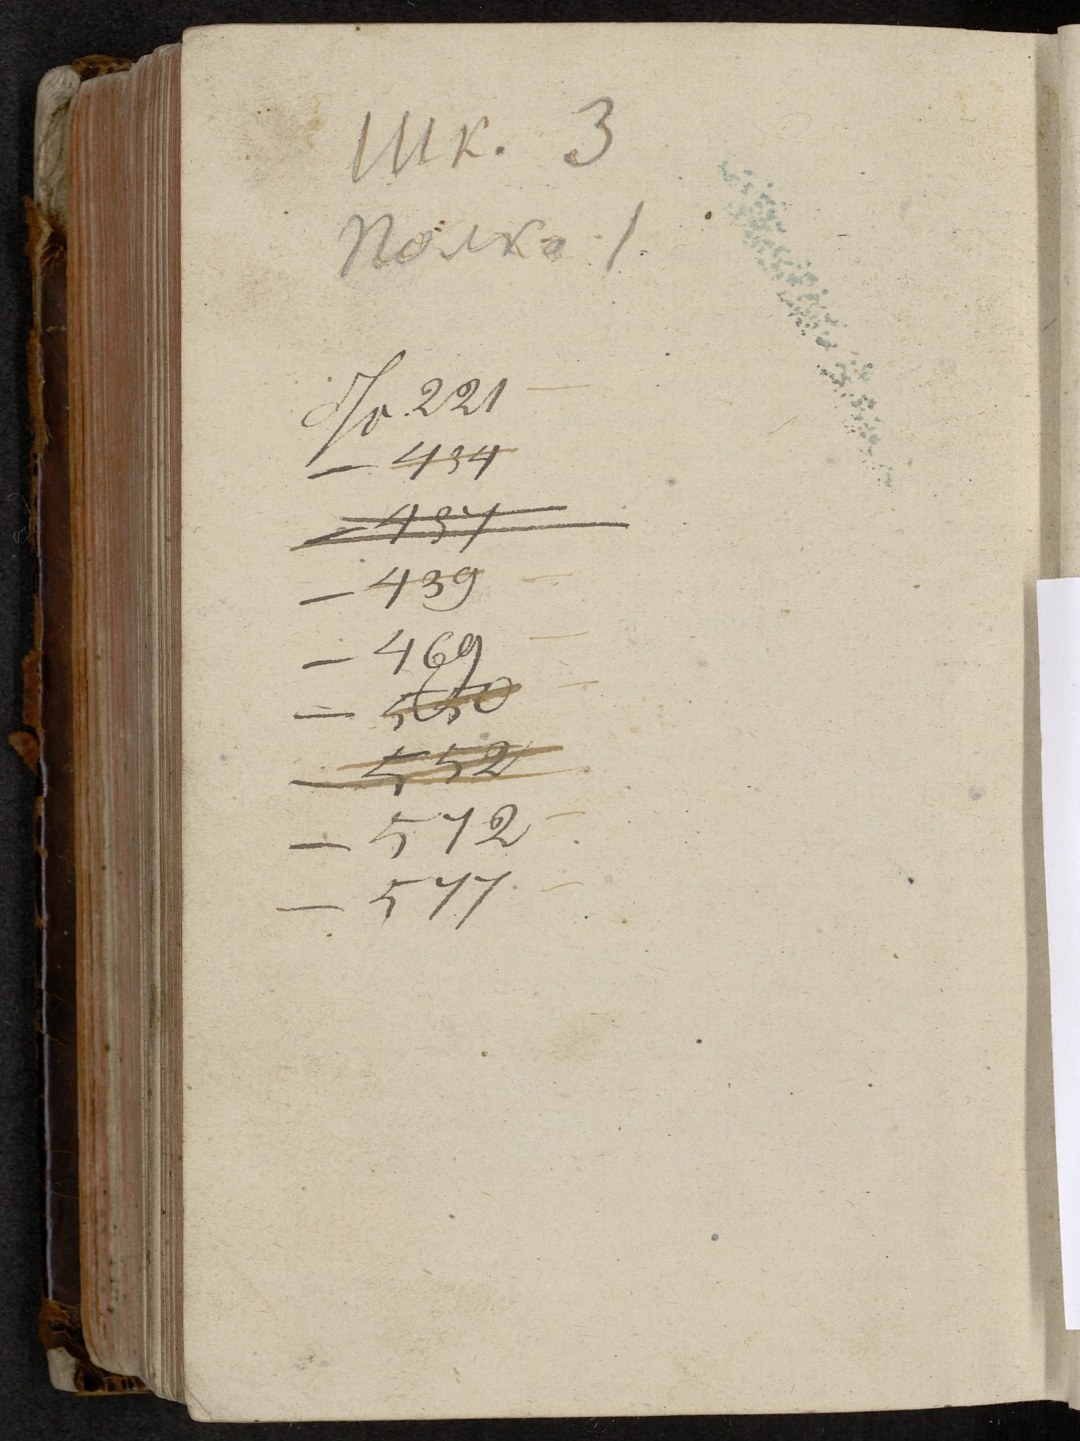 Шк. 3
Полка 1.
221 —
— 434
— 437
— 439 —
— 469 —
— 550 —
— 552
— 572 —
— 577 —